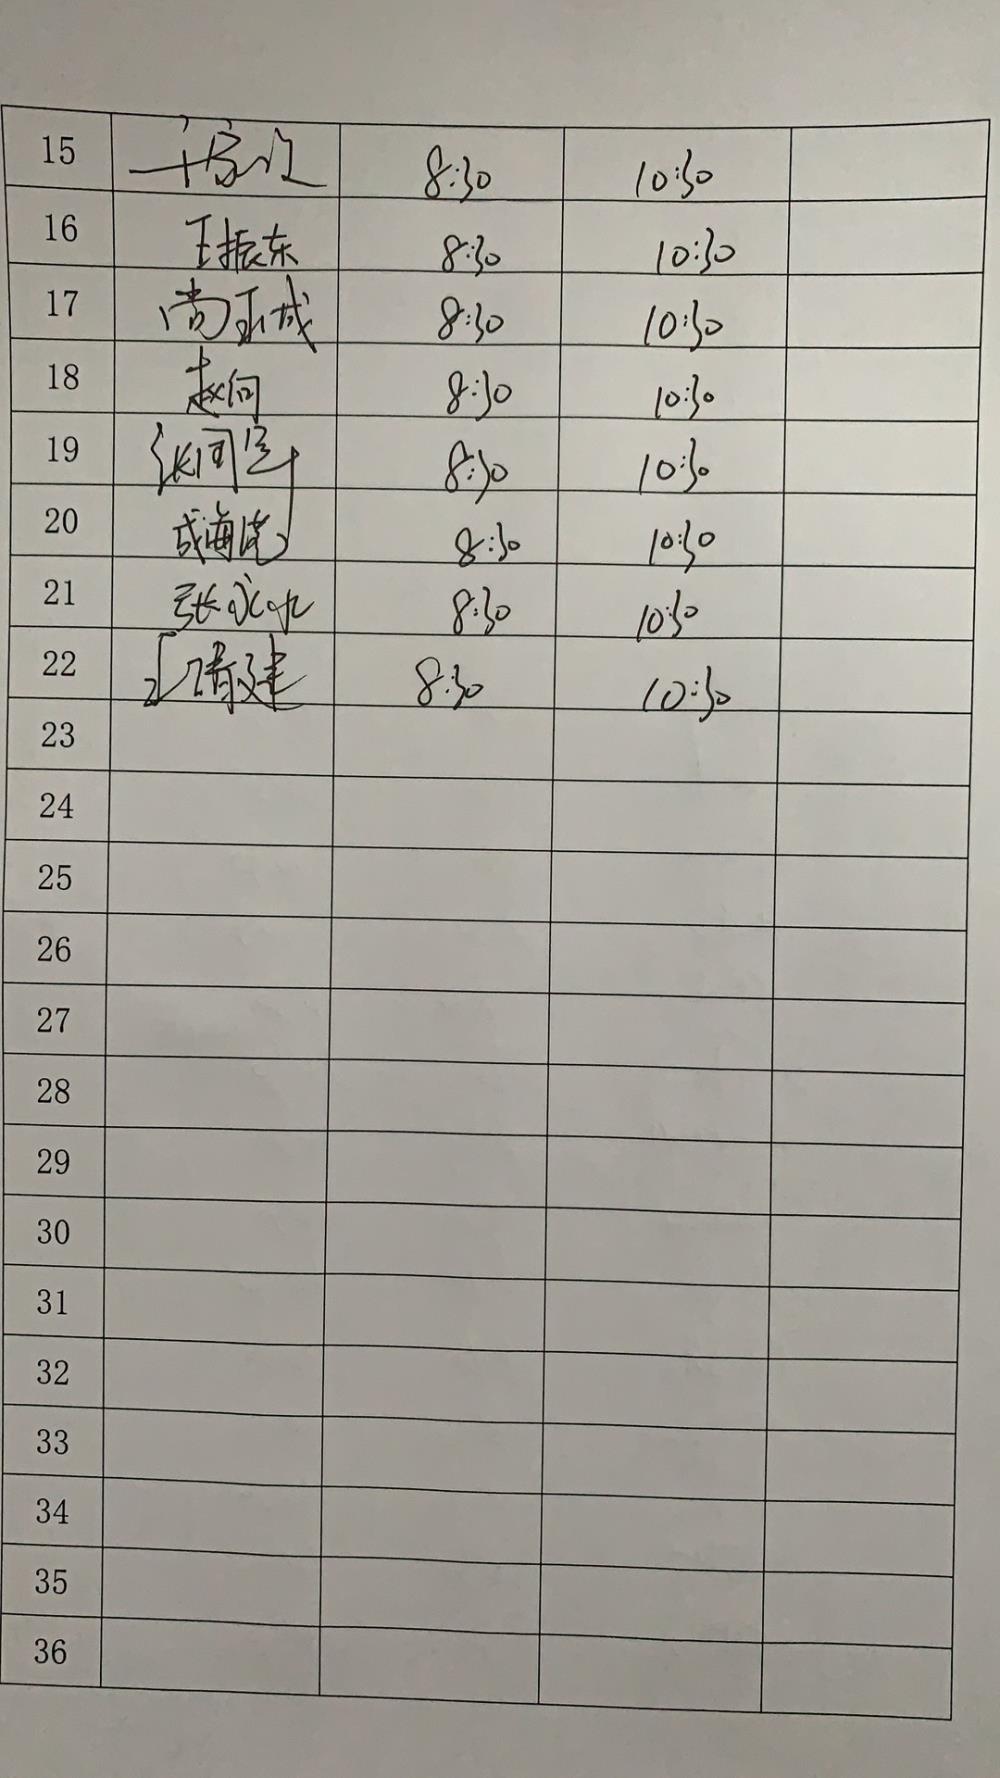 15 8:30 10:30
16 王振东 8:30 10:30
17 尚玉成 8:30 10:30
18 赵何 8:30 10:30
19 8:30 10:30
20 成海 8:30 10:30
21 张 8:30 10:30
22 建 8:30 10:30
23
24
25
26
27
28
29
30
31
32
33
34
35
36